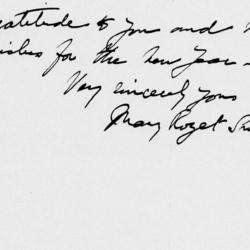 gratitude to you and
wishes for the new year –
Very sincerely yours
Mary Roget S